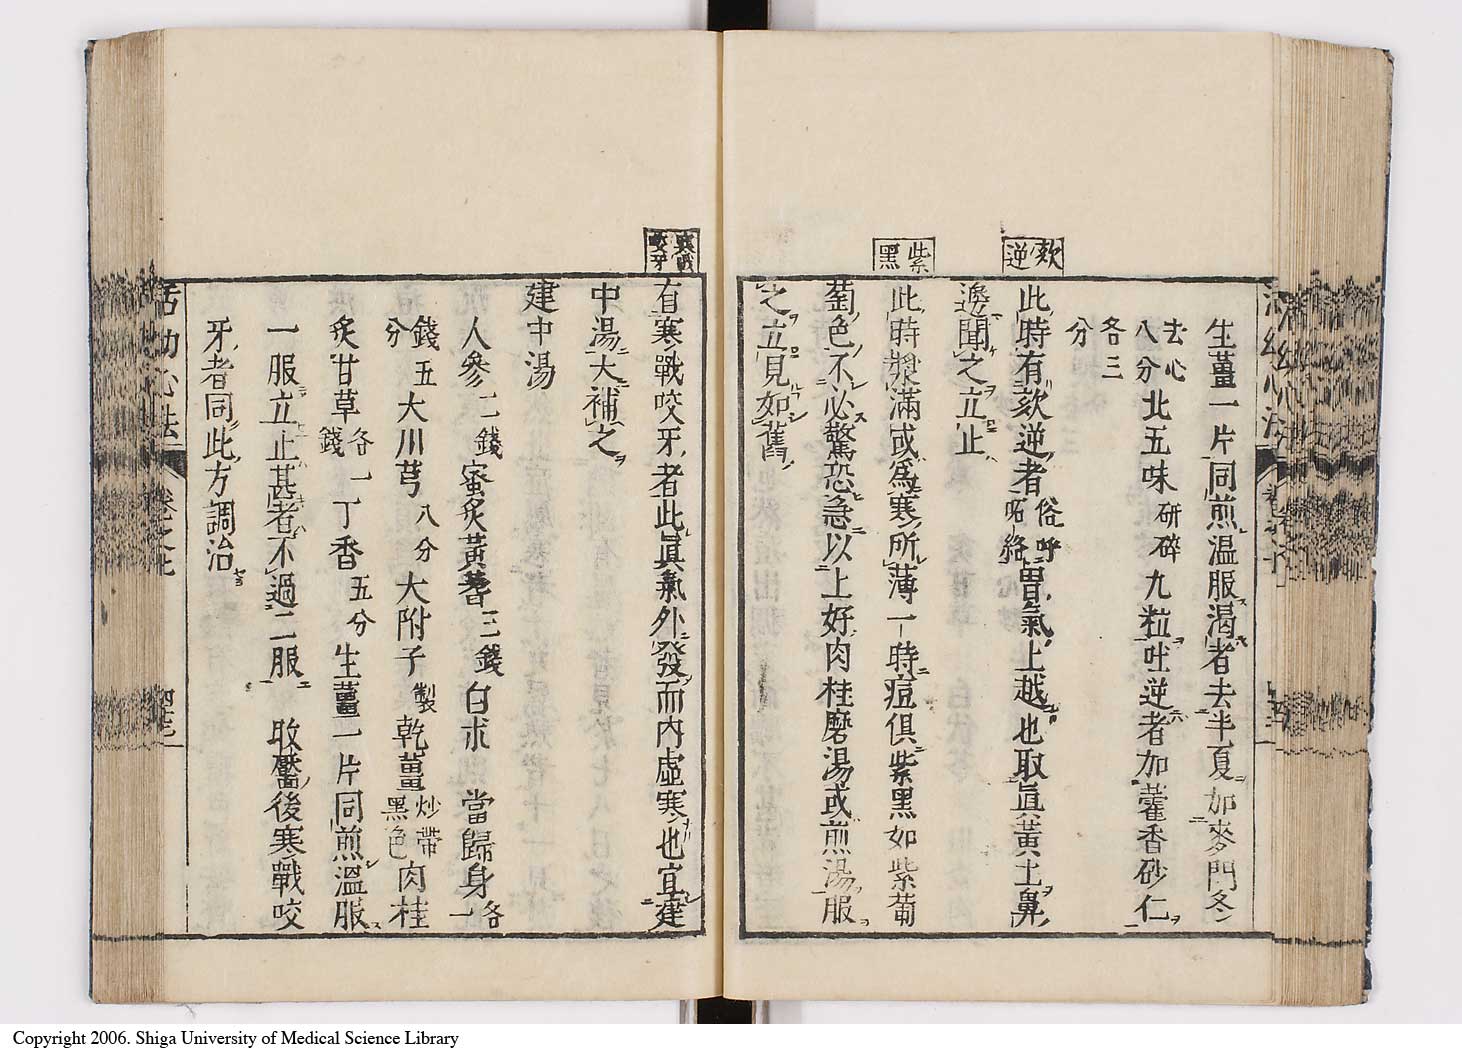 生薑一片同煎温服渴者去半夏加麥門冬
去心八分北五味研碎九粒吐逆者加藿香砂仁
各三分
欬逆
此時有欬逆者俗呼呃絡胃氣上越也取眞黃土鼻
邊聞之立止
紫黑
此時漿滿或爲寒所薄一時痘俱紫黑如紫葡
萄色不必驚恐急以上好肉桂磨湯或煎湯服
之立見如舊
寒戰咬牙
有寒戰咬牙者此眞氣外發而内虛寒也宜建
中湯大補之
建中湯
人參二錢蜜炙黃耆三錢白朮 當歸身各一
錢五分大川芎八分大附子製乾薑炒帶黑色肉桂
炙甘草各一錢丁香五分生薑一片同煎溫服
一服立止甚者不過二服 收靨後寒戰咬
牙者同此方調治
活幼心法
卷之七